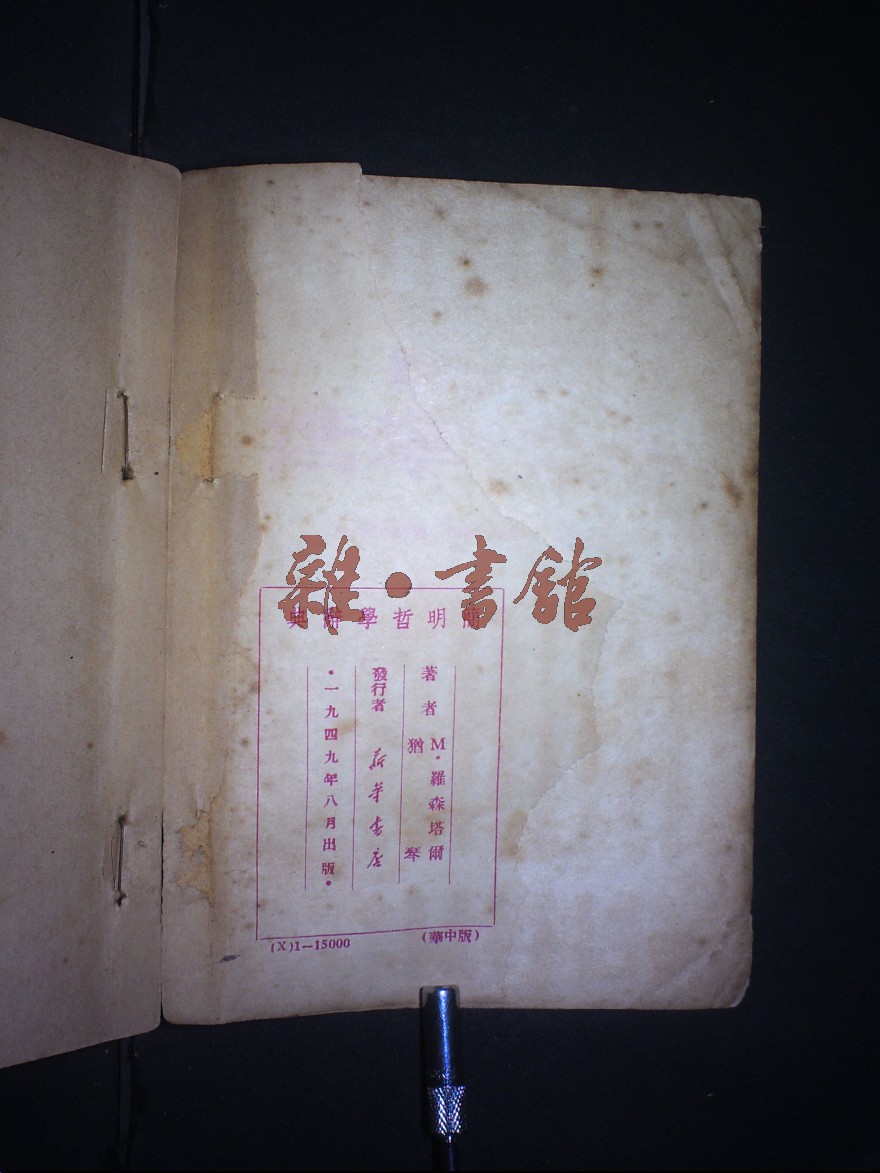 雜·書館
簡明哲學辭典
著者 M·羅森塔爾
猶琴
發行者 新華書店
·一九四九年八月出版·
(華中版)
(X)1—15000